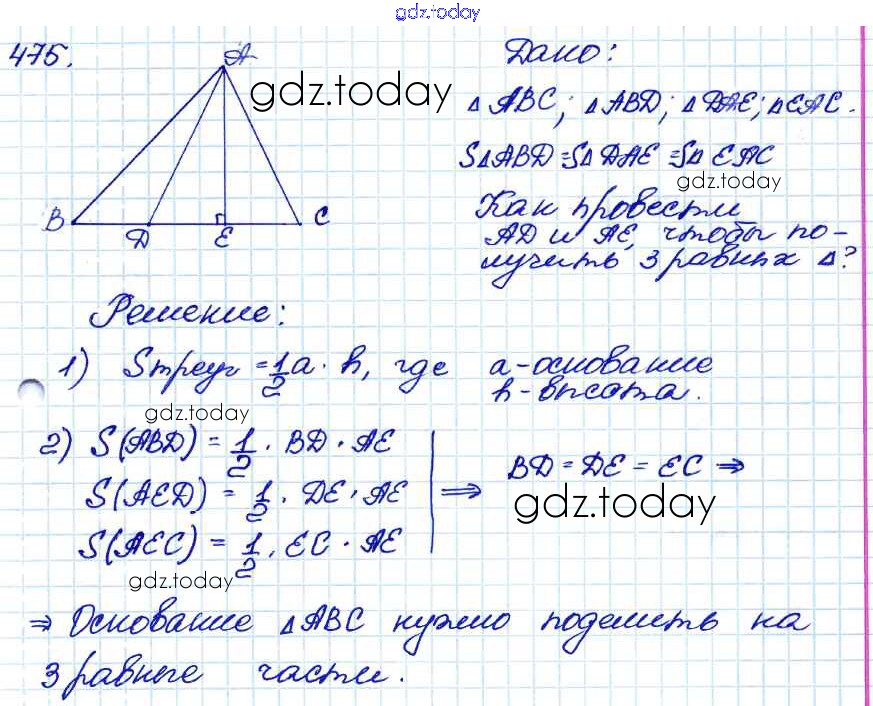 gdz.today
475.
A
B
D
E
C
gdz.today
Дано:
△ ABC; △ABD; △ DAE; △EAC.
S△ABD = S△ DAE = S△ EAC
gdz.today
Как провести
AD и AE, чтобы по-
лучить 3 равных △?
Решение:
1) Sтреуг = 1/2 a · h, где a - основание
h - высота.
gdz.today
2) S(ABD) = 1/2 · BD · AE
S(AED) = 1/2 · DE · AE
S(AEC) = 1/2 · EC · AE
⇒ BD = DE = EC ⇒
gdz.today
gdz.today
⇒ Основание △ABC нужно поделить на
3 равные части.